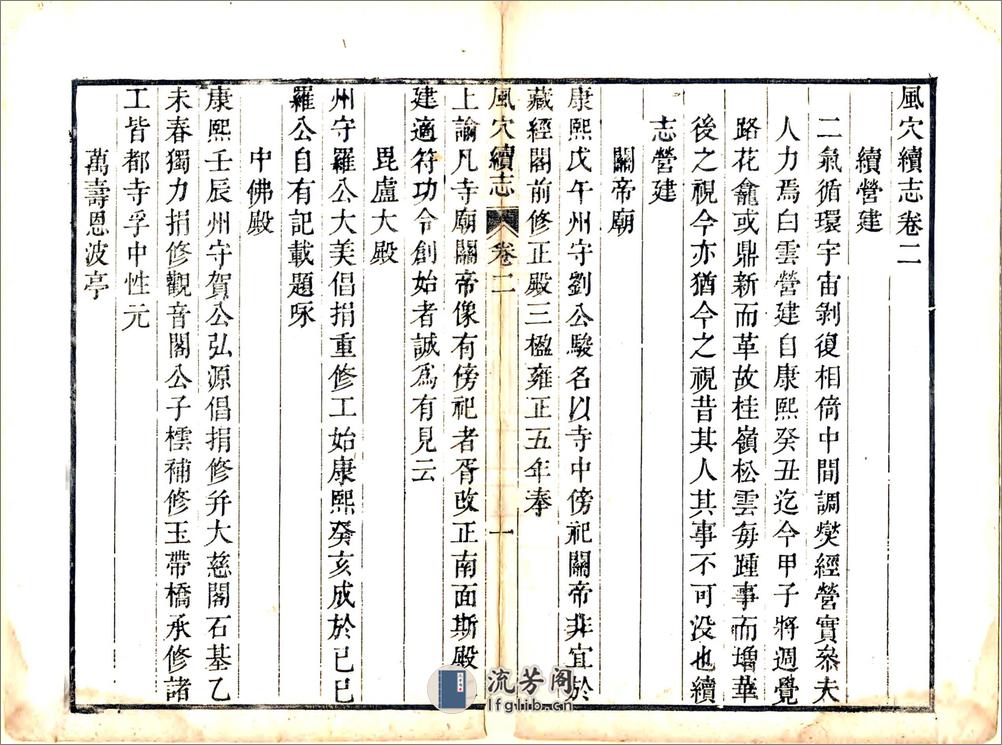 風穴續志卷二
續營建
二氣循環宇宙剝復相倚中間調燮經營實叅夫
人力焉白雲營建自康熙癸丑迄今甲子將週覺
路花龕或鼎新而革故桂嶺松雲每踵事而增華
後之視今亦猶今之視昔其人其事不可没也續
志營建
關帝廟
康熙戊午州守劉公駿名以寺中傍祀關帝非宜於
藏經閣前修正殿三楹雍正五年奉
風穴續志 卷二 一
上諭凡寺廟關帝像有傍祀者胥改正南面斯殿
建適符功令創始者誠爲有見云
毘盧大殿
州守羅公大美倡捐重修工始康熙癸亥成於己巳
羅公自有記載題咏
中佛殿
康熙壬辰州守賀公弘源倡捐修并大慈閣石基乙
未春獨力捐修觀音閣公子橒補修玉帶橋承修諸
工皆都寺孚中性元
萬壽恩波亭
流芳阁
lfglib.cn